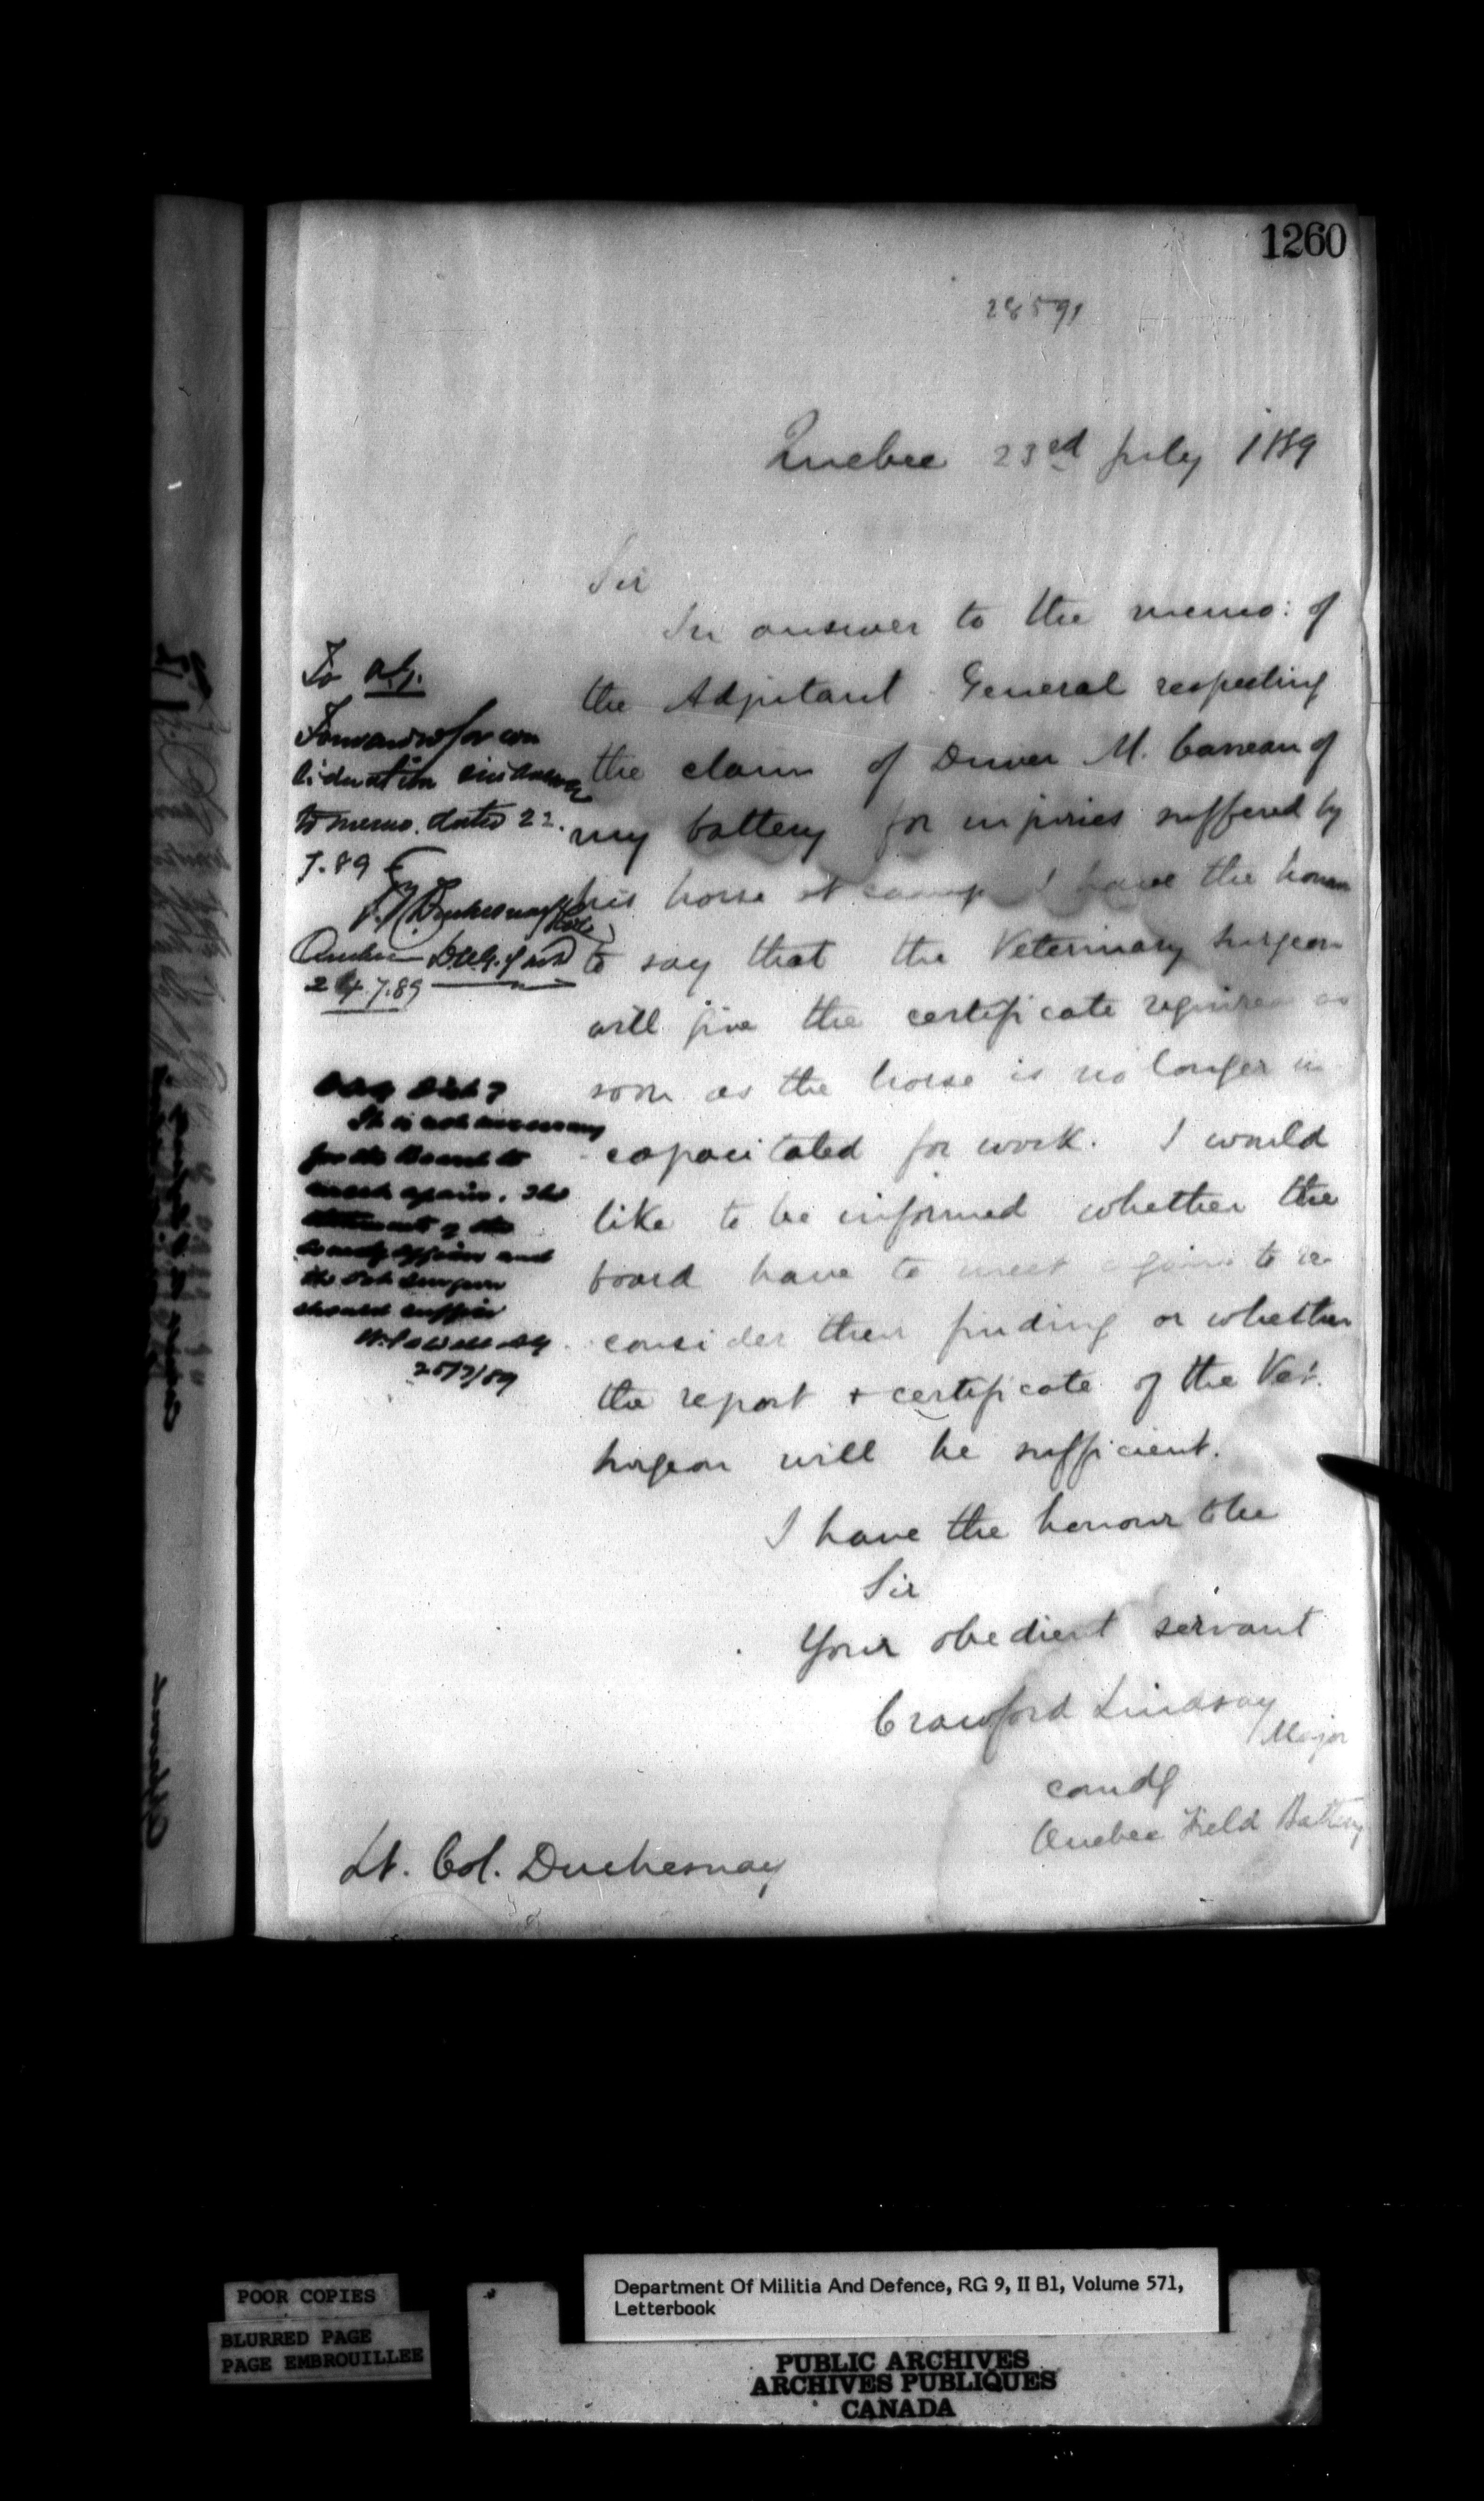 1260
28591
Quebec 23rd July 1889
Sir
In answer to the memo: of
the Adjutant General respecting
the claim of Driver M. Carreau of
my battery for injuries suffered by
his horse at camp I have the honour
to say that the Veterinary Surgeon
will give the certificate required as
soon as the horse is no longer in
capacitated for work. I would
like to be informed whether the
board have to meet again to re
consider their finding or whether
the report + certificate of the Vet.
Surgeon will be sufficient.
I have the honour to be
Sir
Your obedient servant
Crawford Lindsay
Major
comdg
Quebec Field Battery
Lt. Col. Duchesnay
To A.G.
Forwarded for con
sideration in answer
to memo. dated 22.
7.89
Duchesnay Lt Col
Quebec D.A.G.
24.7.89
It is not necessary
for the Board to
meet again. The
statement of the
comdg officer and
the Vet Surgeon
should suffice
W. Powell AG
25/7/89
POOR COPIES
BLURRED PAGE
PAGE EMBROUILLEE
Department Of Militia And Defence, RG 9, II B1, Volume 571,
Letterbook
PUBLIC ARCHIVES
ARCHIVES PUBLIQUES
CANADA